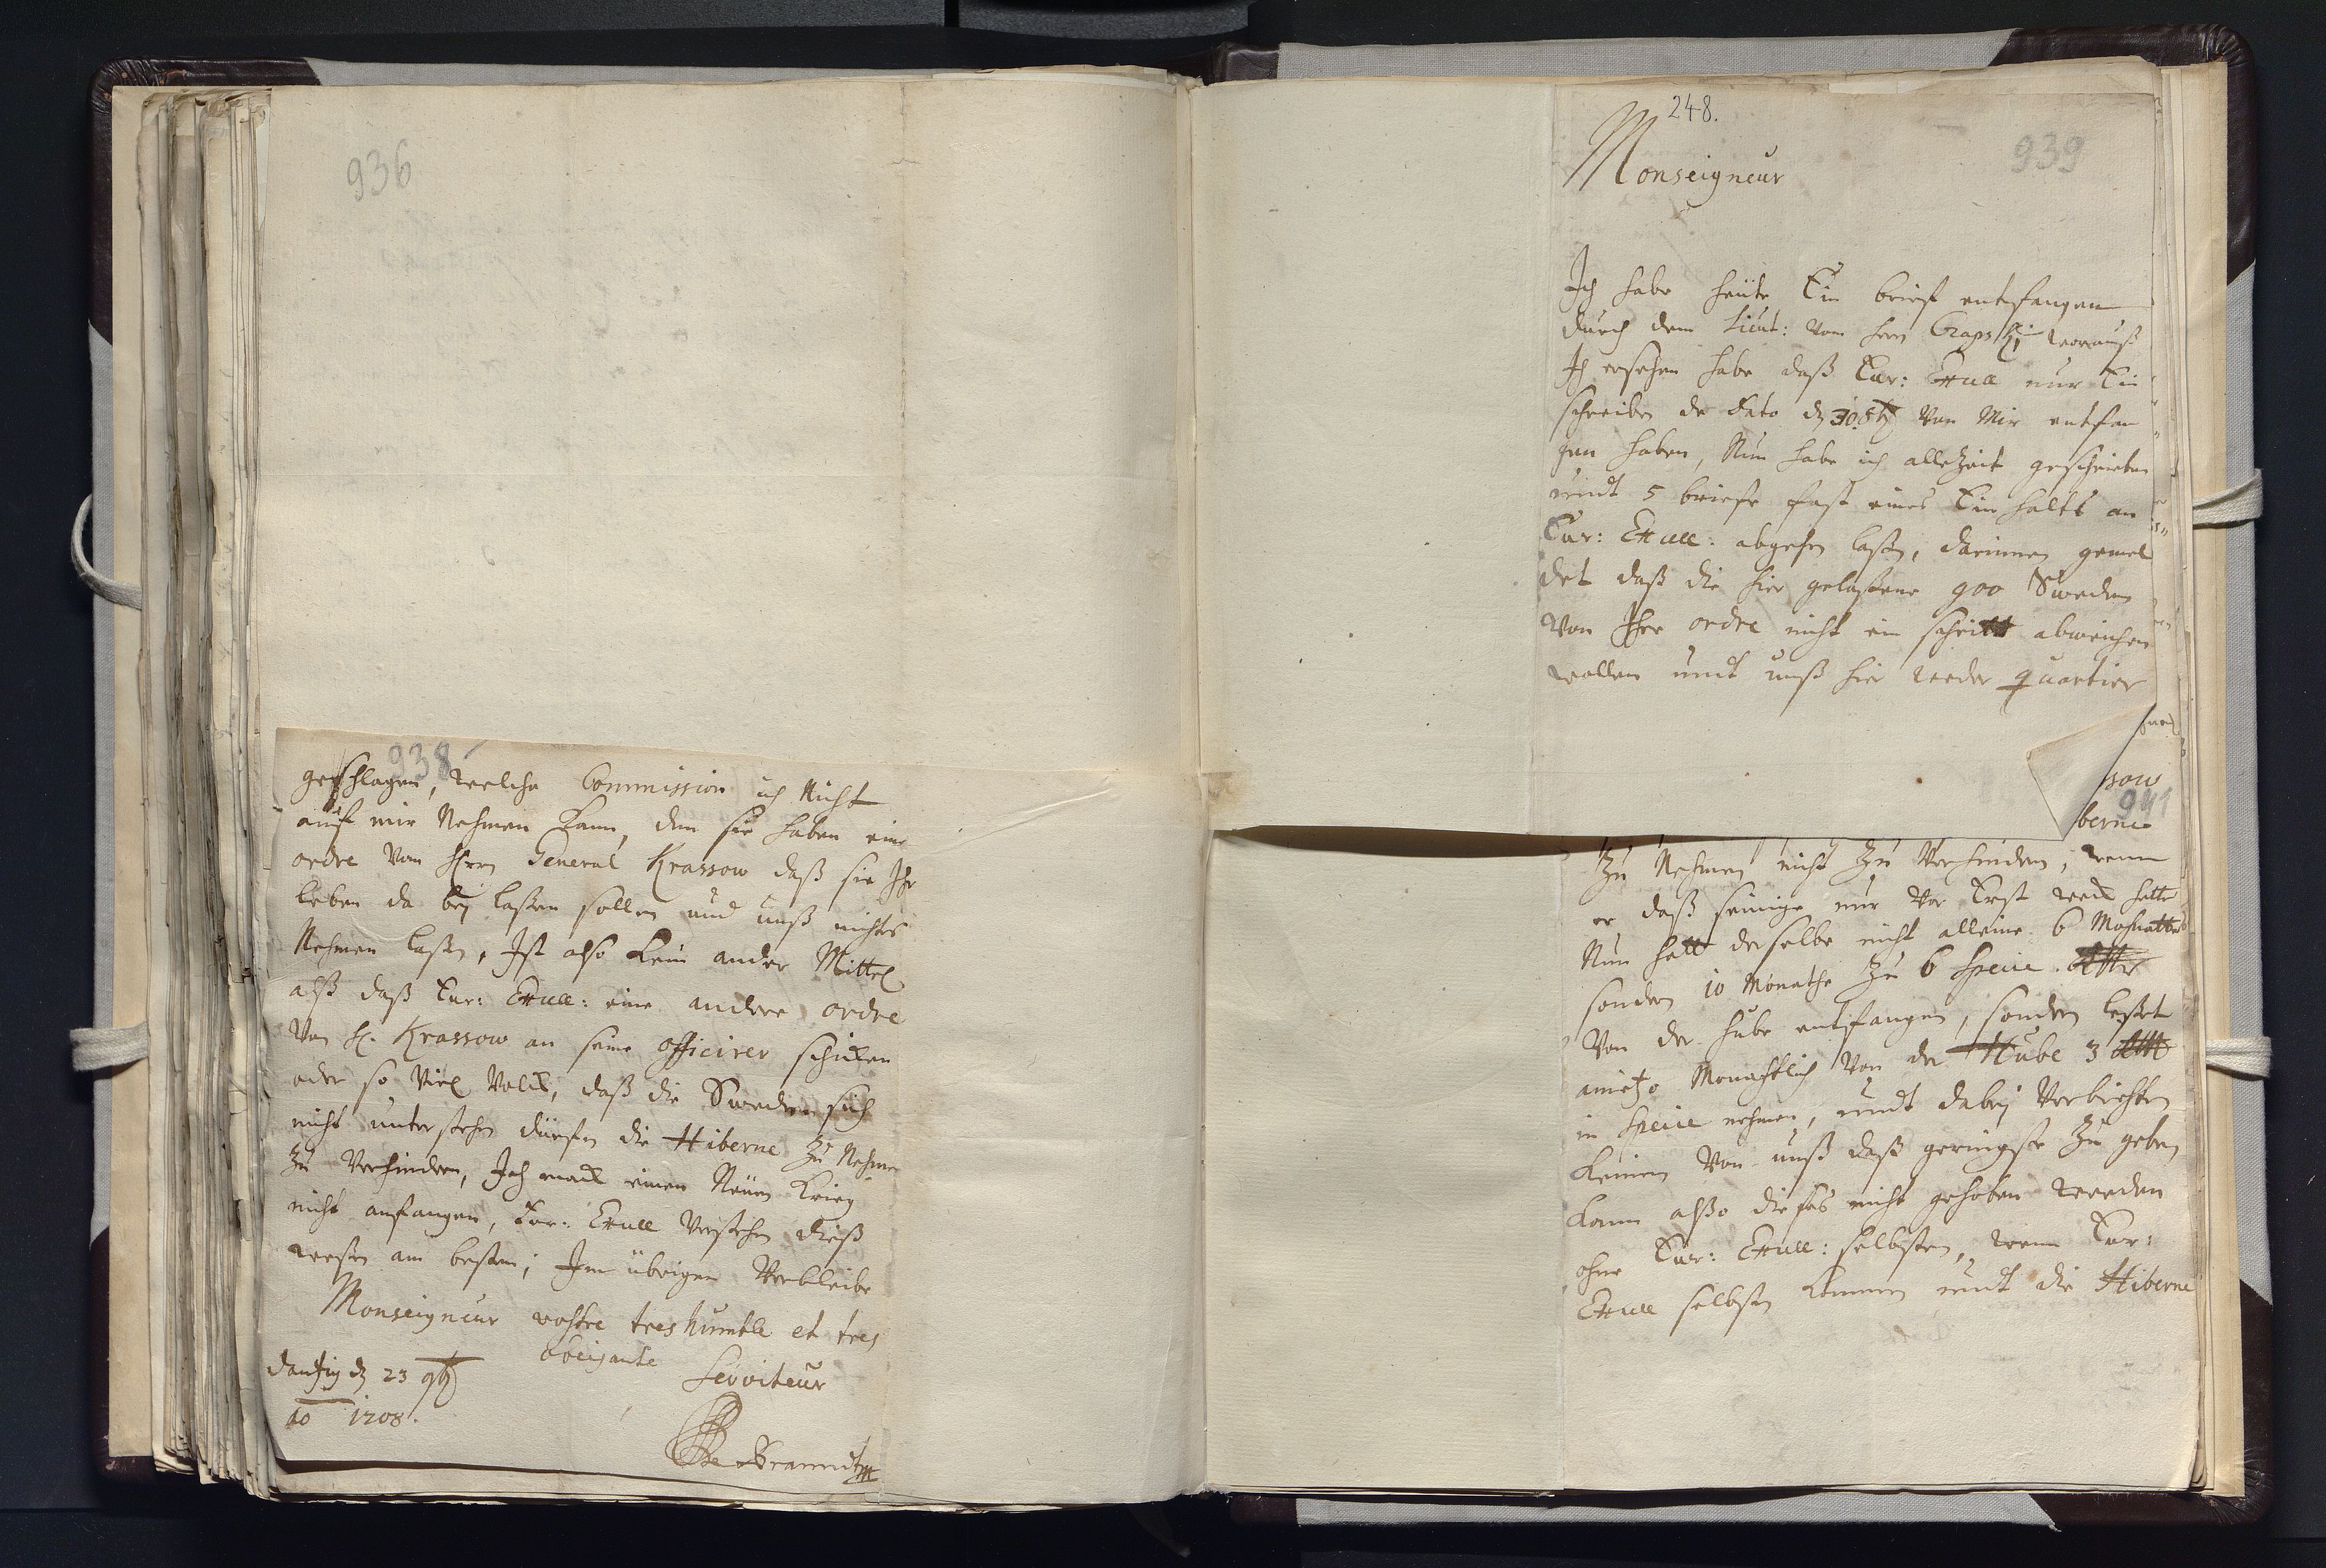 936
938
geschlagen, welche Commission ich Nicht
auf mir Nehmen kann, den sie haben eine
ordre Von Herrn General Krassow daß sie Ihr
leben da beÿ laßen sollen und unß nichts
Nehmen laßen, Ist also kein ander Mittel
alß daß Eur: Excell: eine andere ordre
Von H. Krassow an seine officirer schicken
oder so Viel Volck, daß die Sweden sich
nicht unterstehn dürfen die Hiberne zu Nehmen
zu Verhindern, Ich mach einen Neuen Krieg
nicht anfangen, Eur: Excell Verstehn dieß
wesen am besten; Im übrigen Verbleibe
Monseigneur vostre tres humble et tres
obeisante Serviteur
dantzig d 23 9b
10 1708.
Branndt
248.
939
Monseigneur
Ich habe heüte Ein brieff entfangen
durch dem Lieut: von herrn Czapski worauß
Ich ersehen habe daß Eur: Excell nur Ein
schreiben de dato d 30 8b Von Mir entfan
gen haben, Nun habe ich allezeit geschrieben
undt 5 brieffe fast eines Einhalts an
Eur: Excell: abgehen laßen, darinnen gemel
det daß die hier gelaßene 900 Sweden
Von Ihr ordre nicht ein schritt abweichen
wollen undt unß hier weder quartier
sow
941
berne
zu Nehmen nicht zu Verhindern, wenn
er daß seinige nur Vor Erst weck hette
Nun hatt derselbe nicht alleine 6 Mohnatte
sondern 10 Monathe zu 6 Specie
Von der hube entfangen, sondern leßet
anietzo Monathlich Von der Hube 3
in Specie nehmen, undt dabeÿ Verbiehten
keinen Von unß daß geringste zu geben
kann alßo dieses nicht gehoben werden
ohne Eur: Excell: selbsten, wenn Eur:
Excell selbsten kommen undt die Hiberne